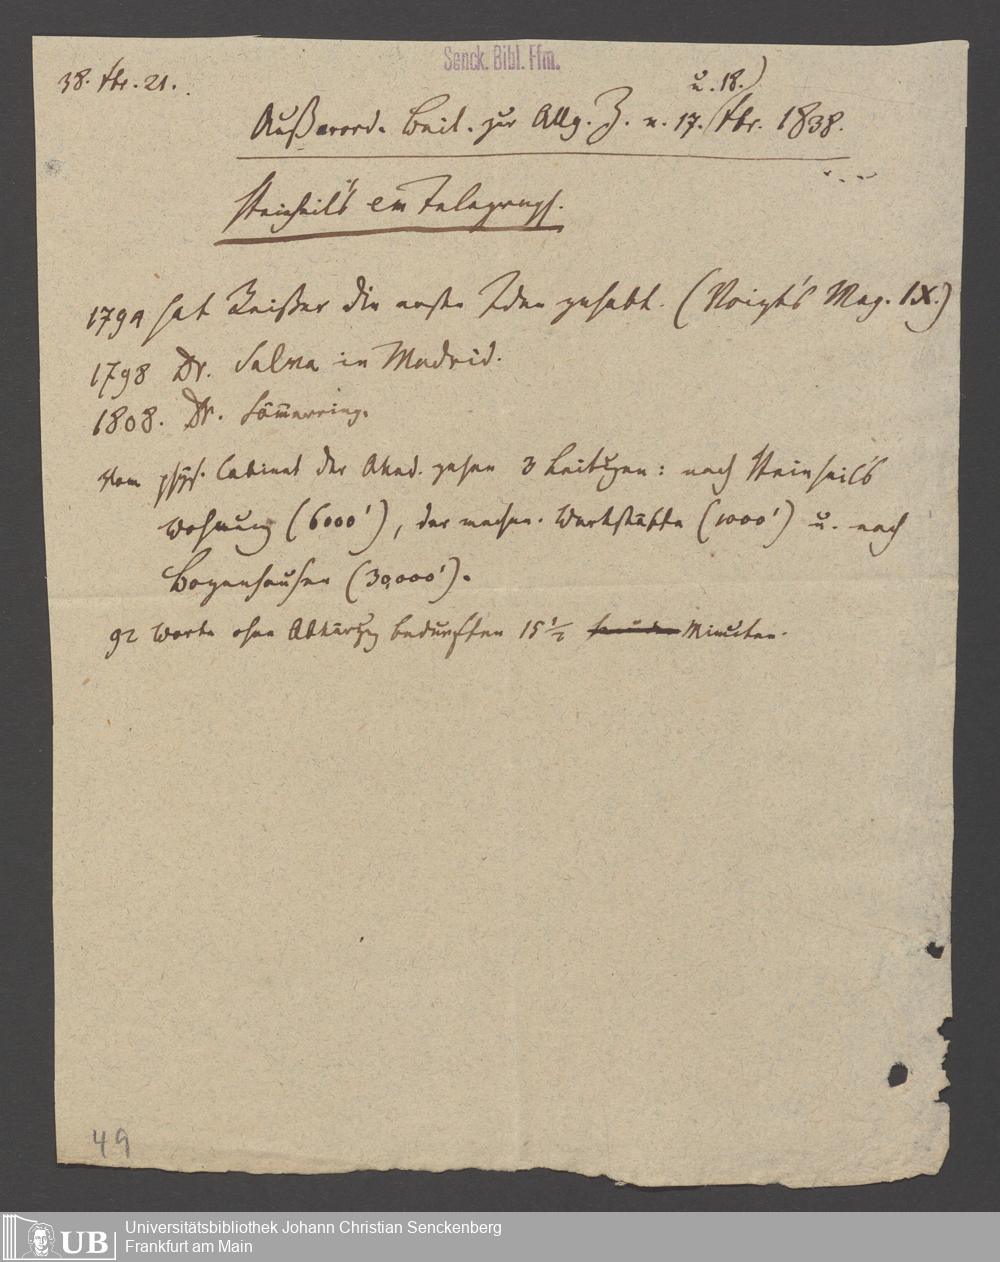 Senck. Bibl. Ffm.
38. 7br. 21.
u. 18.)
Außerord. Beil. zur Allg. Z. v. 17. 7br. 1838.
Steinheil's em Telegraph.
1794 hat Reißer die erste Idee gehabt. (Voigt's Mag. IX.)
1798 Dr. Salva in Madrid.
1808. Dr. Sömmerring.
Vom phÿs. Cabinet der Akad. gehen 3 Leitgen: nach Steinheil's
Wohnung (6000'), der mechan. Werkstätte (1000') u. nach
Bogenhausen (30,000').
92 Worte ohne Abkürzg bedurften 15 1/2 Minuten.
49
UB
Universitätsbibliothek Johann Christian Senckenberg
Frankfurt am Main